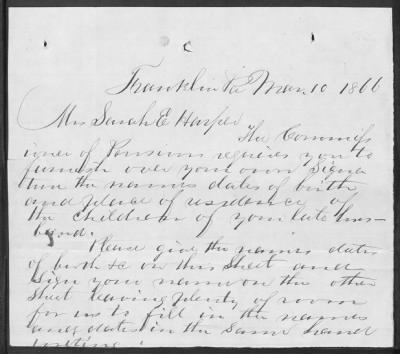 Franklin Pa Mar. 10 1866
Mrs Sarah E Harper
The Commiss
ioner of Pensions requires you to
furnish over your own Signa
ture the names dates of birth
and place of residence of
the children of your late hus-
band.
Please give the names dates
of birth &c on this sheet and
Sign your name on the other
Sheet leaving plenty of room
for us to fill in the names
and dates in the same hand
writing.